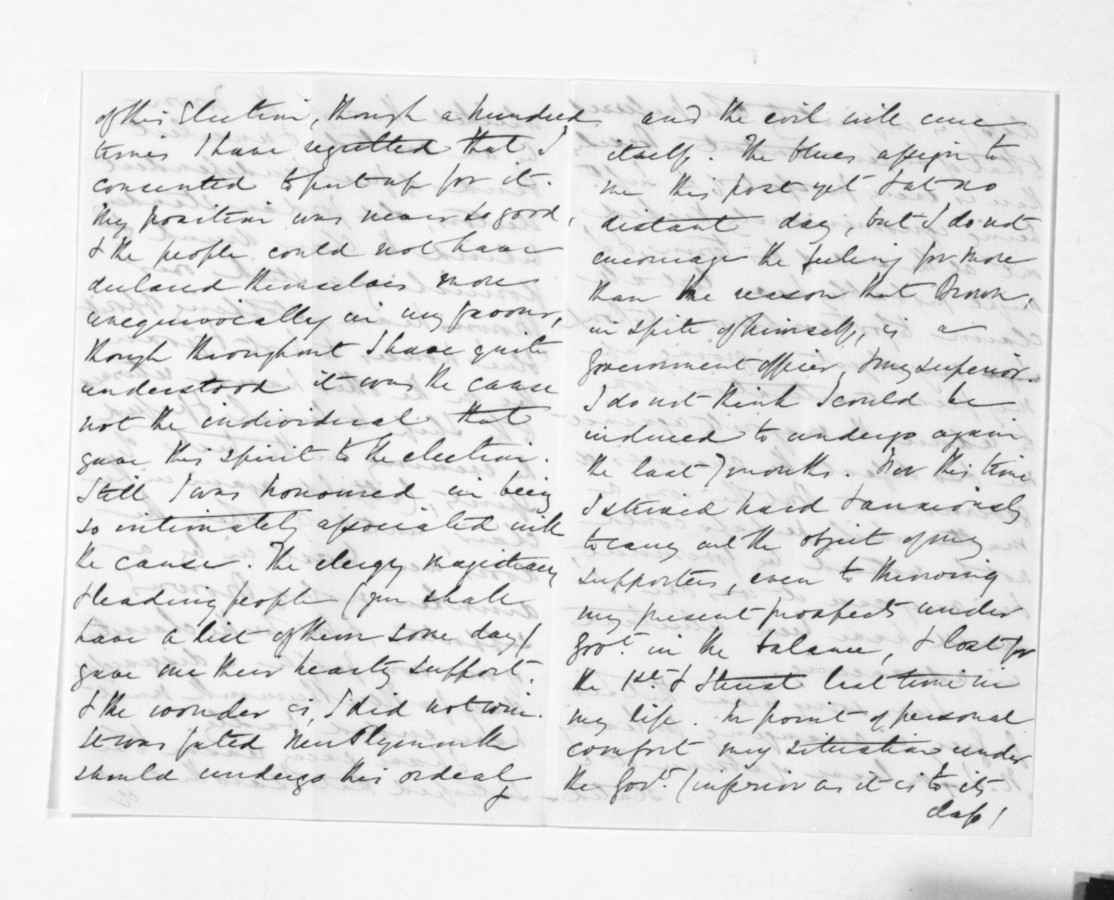 of this Election, though a hundred
times I have regretted that I
consented to put up for it.
My position was never so good,
& the people could not have
declared themselves more
unequivocally in my favour,
though throughout I have quite
understood it was the cause
not the individual that
gave this spirit to the election.
Still I was honoured in being
so intimately associated with
the cause. The clergy, magistracy
& leading people (you shall
have a list of them some day)
gave me their hearty support.
& the wonder is, I did not win.
It was fated New Plymouth
should undergo this ordeal
&
and the evil will cure
itself. The blues assign to
me this post yet & at no
distant day, but I do not
encourage the feeling for more
than the reason that Brown,
in spite of himself, is a
Government officer, & my superior.
I do not think I could be
induced to undergo again
the last 7 months. For this time
I strived hard & anxiously
to carry out the object of my
supporters, even to throwing
my present prospects under
Govt. in the balance, & lost for
the 1st. & I trust last time in
my life. In point of personal
comfort my situation under
the Govt. (inferior as it is to its
class)